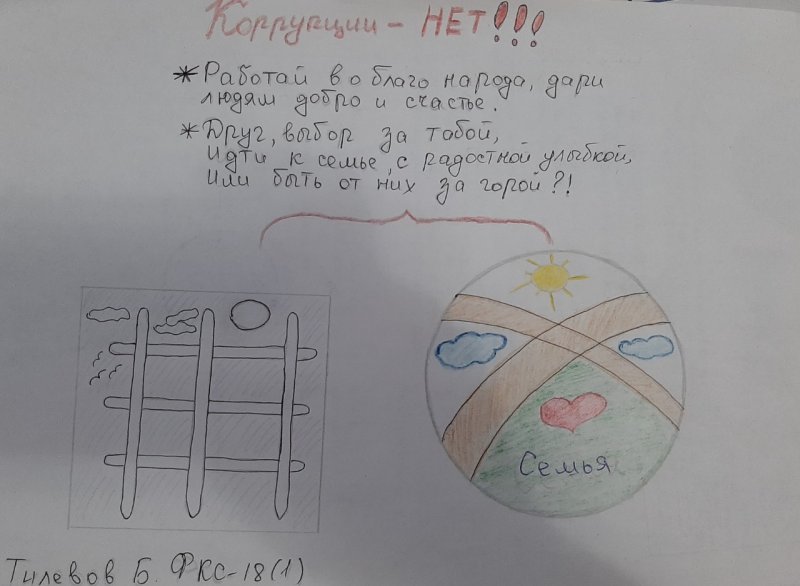 Коррупции - НЕТ!!!
* Работай во благо народа, дари
людям добро и счастье.
* Друг, выбор за табой,
идти к семье, с радостной улыбкой,
или быть от них за горой?!
Семья
Тилевов Б. ФКС-18(1)